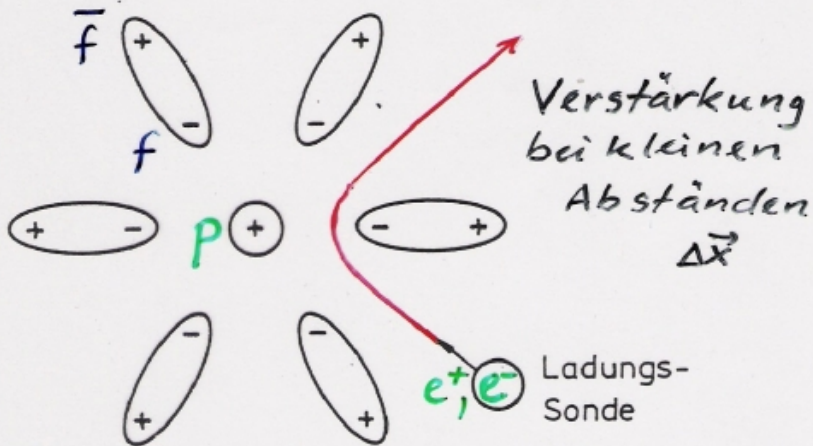 f̄
f
+
-
+
-
+
-
p
+
-
+
-
+
-
+
-
+
Verstärkung
bei kleinen
Abständen
Δx⃗
e⁺, e⁻
Ladungs-
Sonde